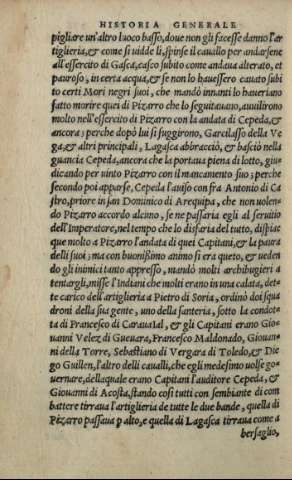 HISTORIA GENERALE
pigliare un'altro luoco basso, doue non gli facesse danno l'ar
tiglieria, & come si uidde lì, spinse il cauallo per andarsene
all'essercito di Gasca, casco subito come andaua alterato, et
pauroso, in certa acqua, & se non lo hauessero cauato subi
to certi Mori negri suoi, che mandò innanti lo haueriano
fatto morire quei di Pizarro che lo seguitauano, auuilirono
molto nell'essercito di Pizarro con la andata di Cepeda, &
ancora; perche dopò lui si fuggirono, Garcilasso della Ve
ga, & altri principali, Lagasca abbracciò, & basciò nella
guancia Cepeda, ancora che la portaua piena di lotto, giu
dicando per uinto Pizarro con il mancamento suo; perche
secondo poi apparse, Cepeda l'auisò con fra Antonio di Ca
stro, priore in san Dominico di Arequipa, che non uolen
do Pizarro accordo alcuno, se ne passaria egli al seruitio
dell'Imperatore, nel tempo che lo disfaria del tutto, dispiac
que molto a Pizarro l'andata di quei Capitani, & la paura
delli suoi; ma con buonissimo animo si era queto, & ueden
do gli inimici tanto appresso, mandò molti archibugieri a
tentargli, misse l'Indiani che molti erano in una calata, det
te carico dell'artiglieria a Pietro di Soria, ordinò doi squa
droni della sua gente, uno della fanteria, sotto la condot
ta di Francesco di Carauaial, & gli Capitani erano Gio
uanni Velez di Gueuara, Francesco Maldonado, Giouan
ni della Torre, Sebastiano di Vergara di Toledo, & Die
go Guillen, l'altro delli caualli, che egli medesimo uolse go
uernare, della quale erano Capitani l'auditore Cepeda, &
Giouanni di Acosta, stando cosi tutti con sembiante di com
battere tiraua l'artiglieria de tutte le due bande, quella di
Pizarro passaua p alto, e quella di Lagasca tiraua come a
bersaglio,